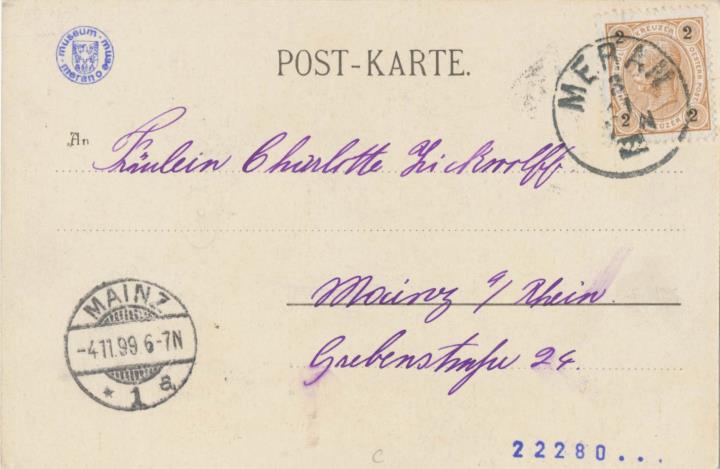 museum · museo merano
POST-KARTE.
2 KREUZER 2
2 KREUZER 2
MERAN
An
Fräulein Charlotte Zickwolff
Mainz a/ Rhein.
Grebenstraße 24.
MAINZ
-4.11.99 6-7N
* 1 a
22280...
C